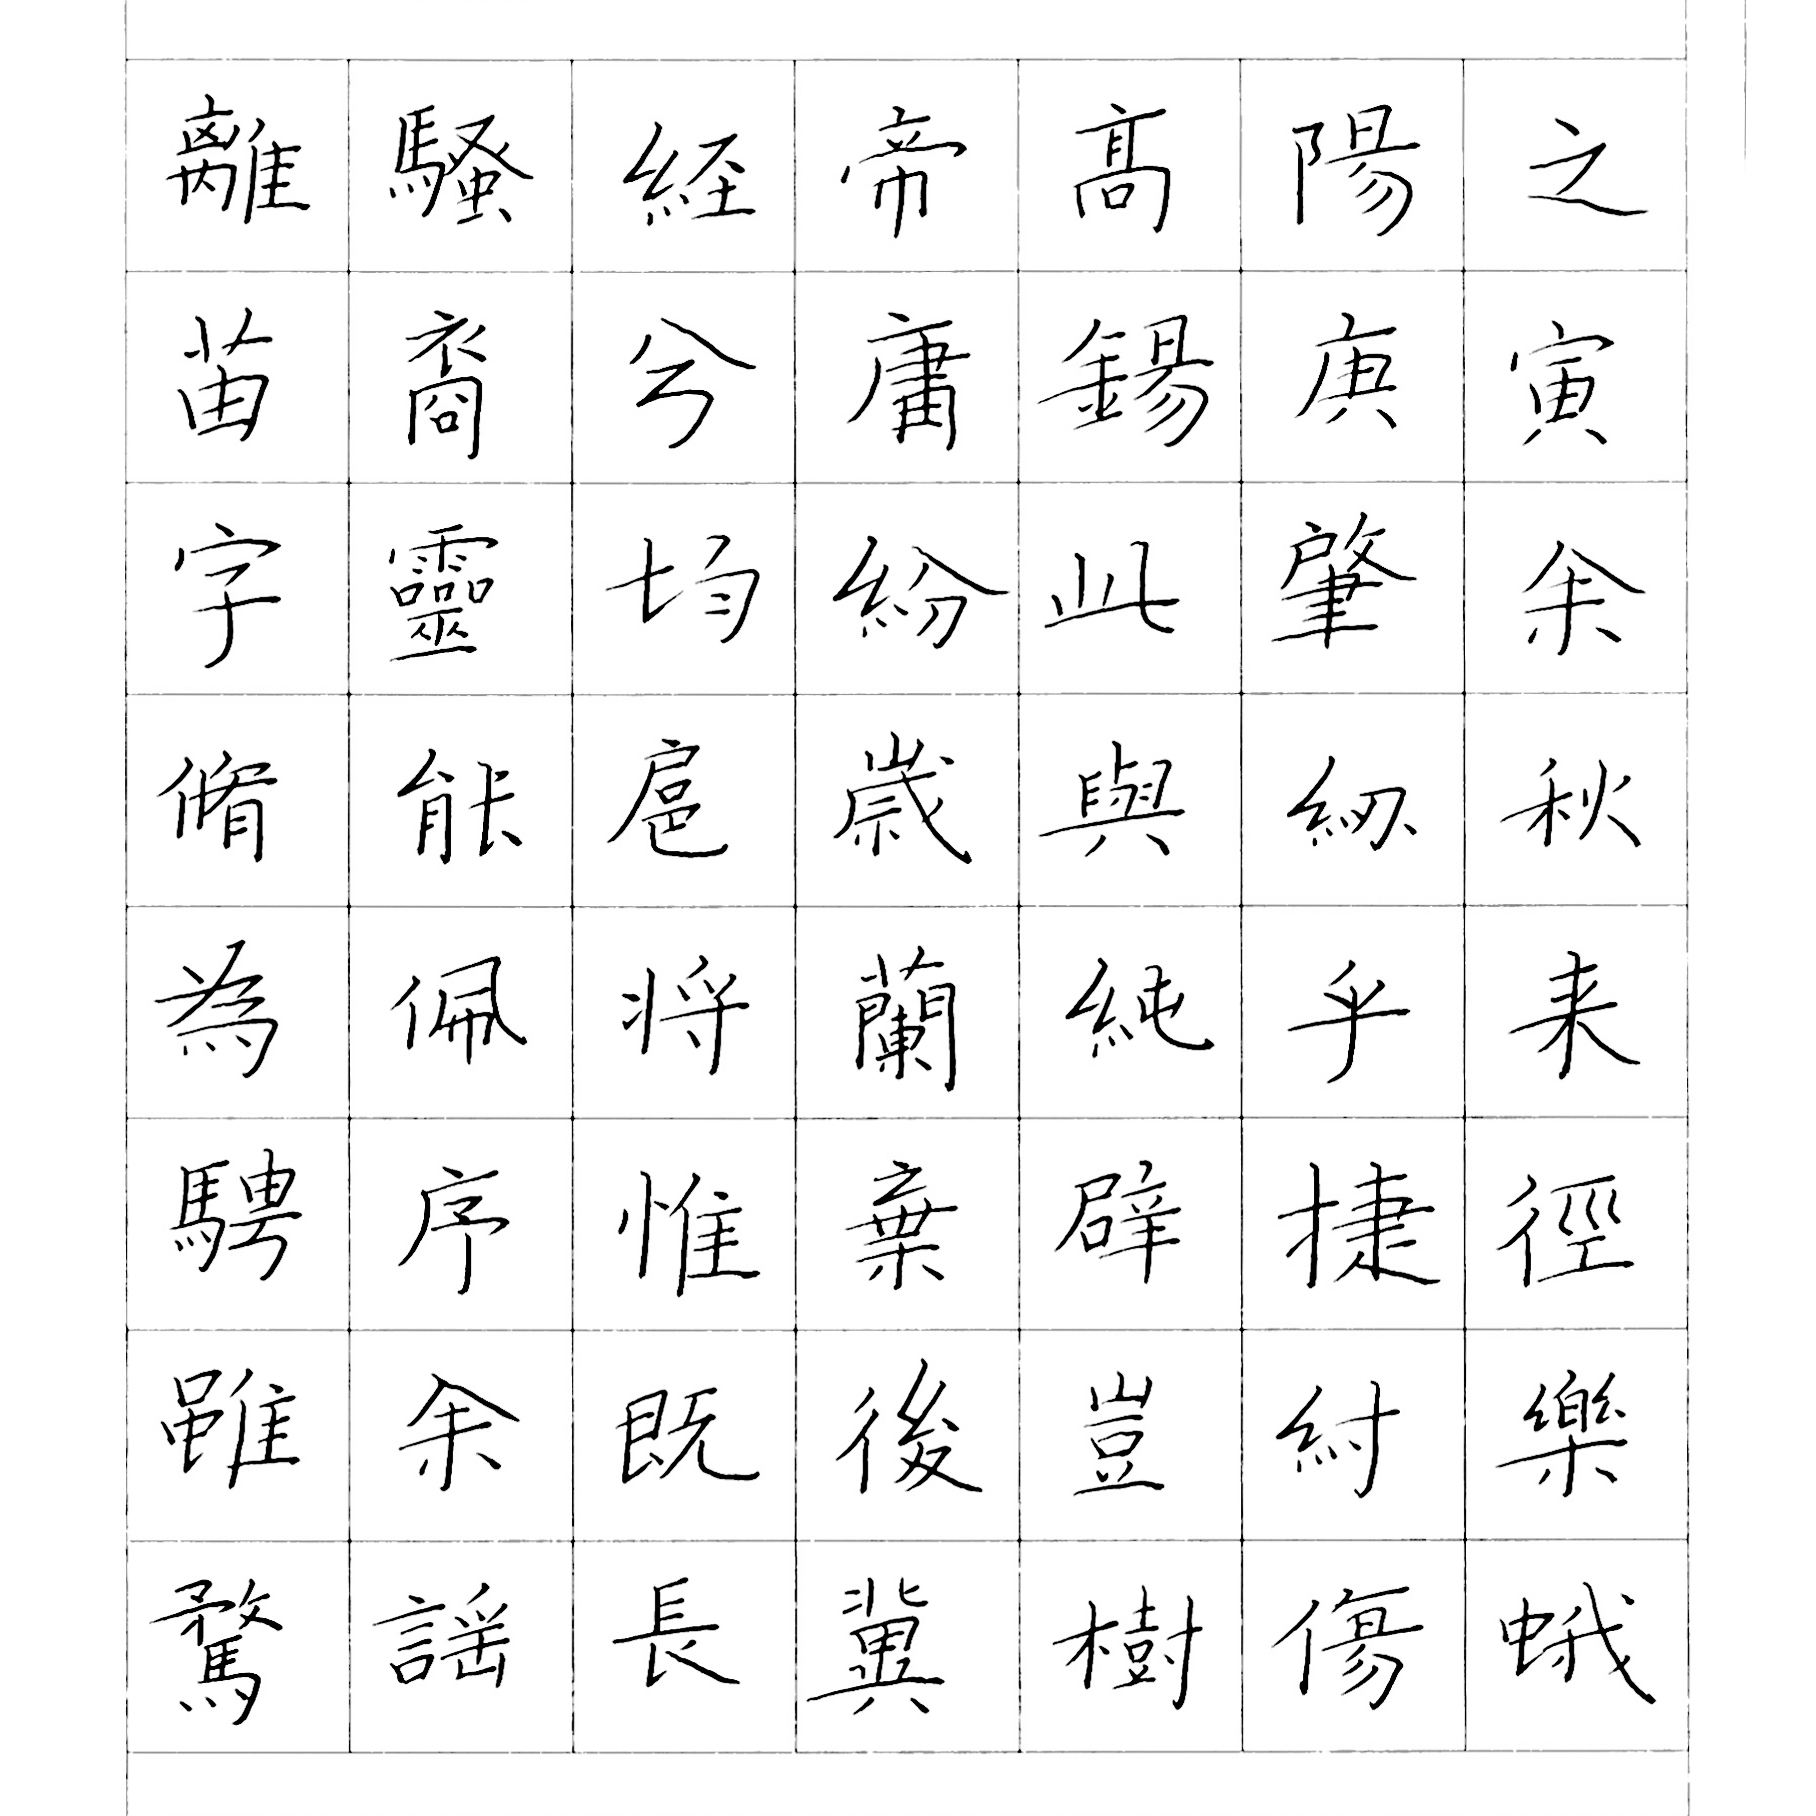 離騷経帝髙陽之
苗裔兮庸錫庚寅
字靈均紛此肇余
脩能扈歲與紉秋
為佩将蘭純乎来
騁序惟棄辟捷徑
雖余既後豈紂樂
騖謡長冀樹傷蛾